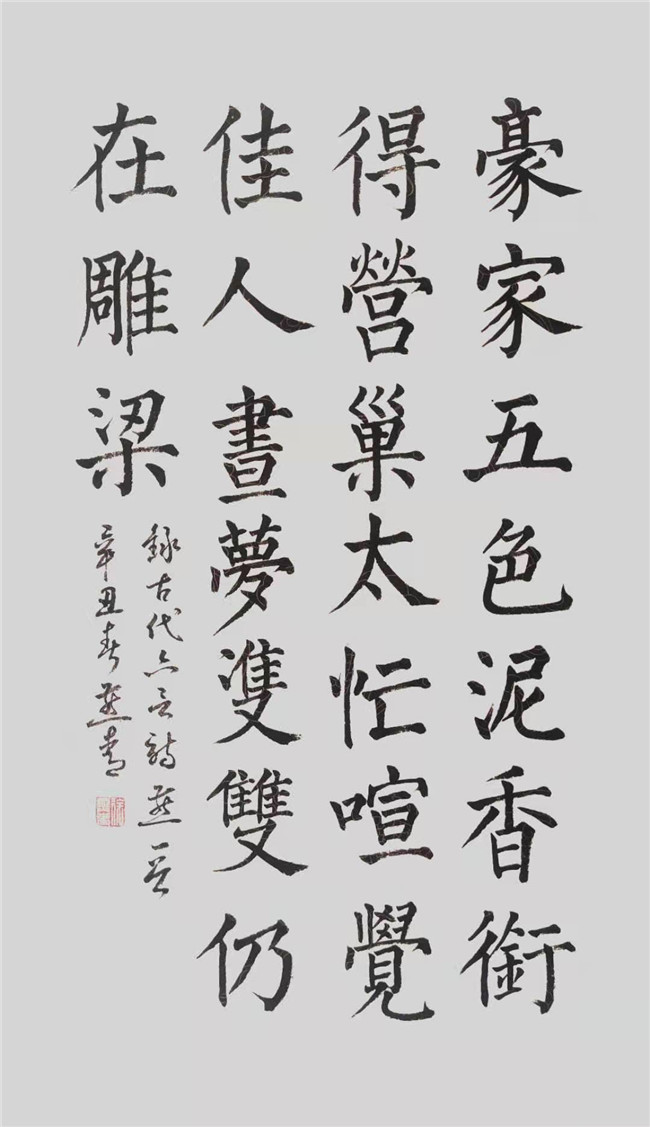 豪家五色泥香銜
得營巢太忙喧覺
佳人晝夢雙雙仍
在雕梁
錄古代六言詩燕一首
辛丑春燕青